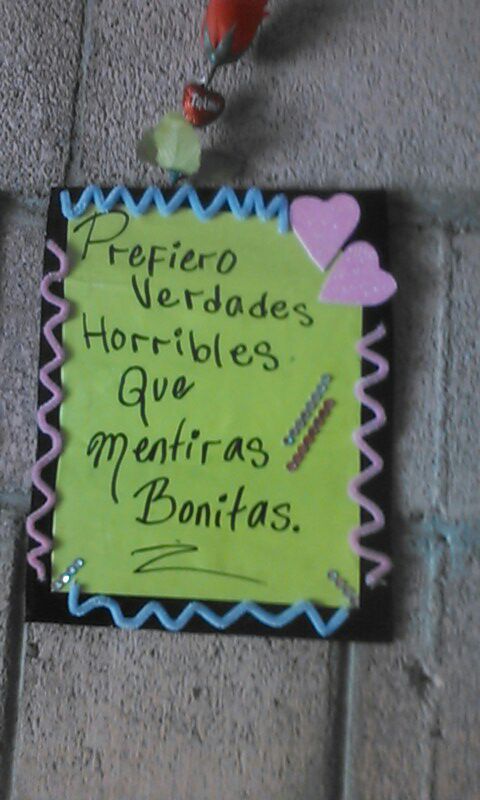 Prefiero
Verdades
Horribles
Que
mentiras
Bonitas.